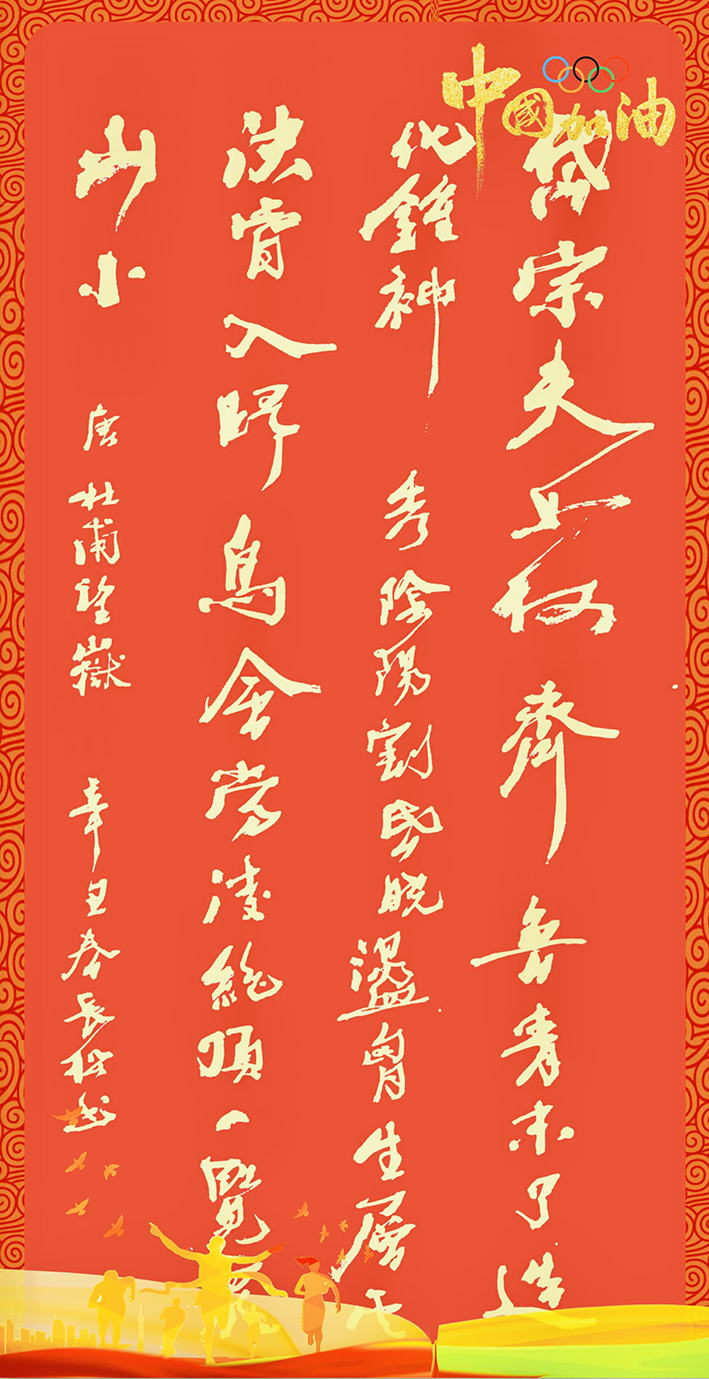 中國加油
岱宗夫如何齊魯青未了造
化鍾神秀陰陽割昏曉盪胷生層云
決眥入歸鳥會當凌絕頂一覽眾
山小
唐杜甫望嶽
辛丑春長